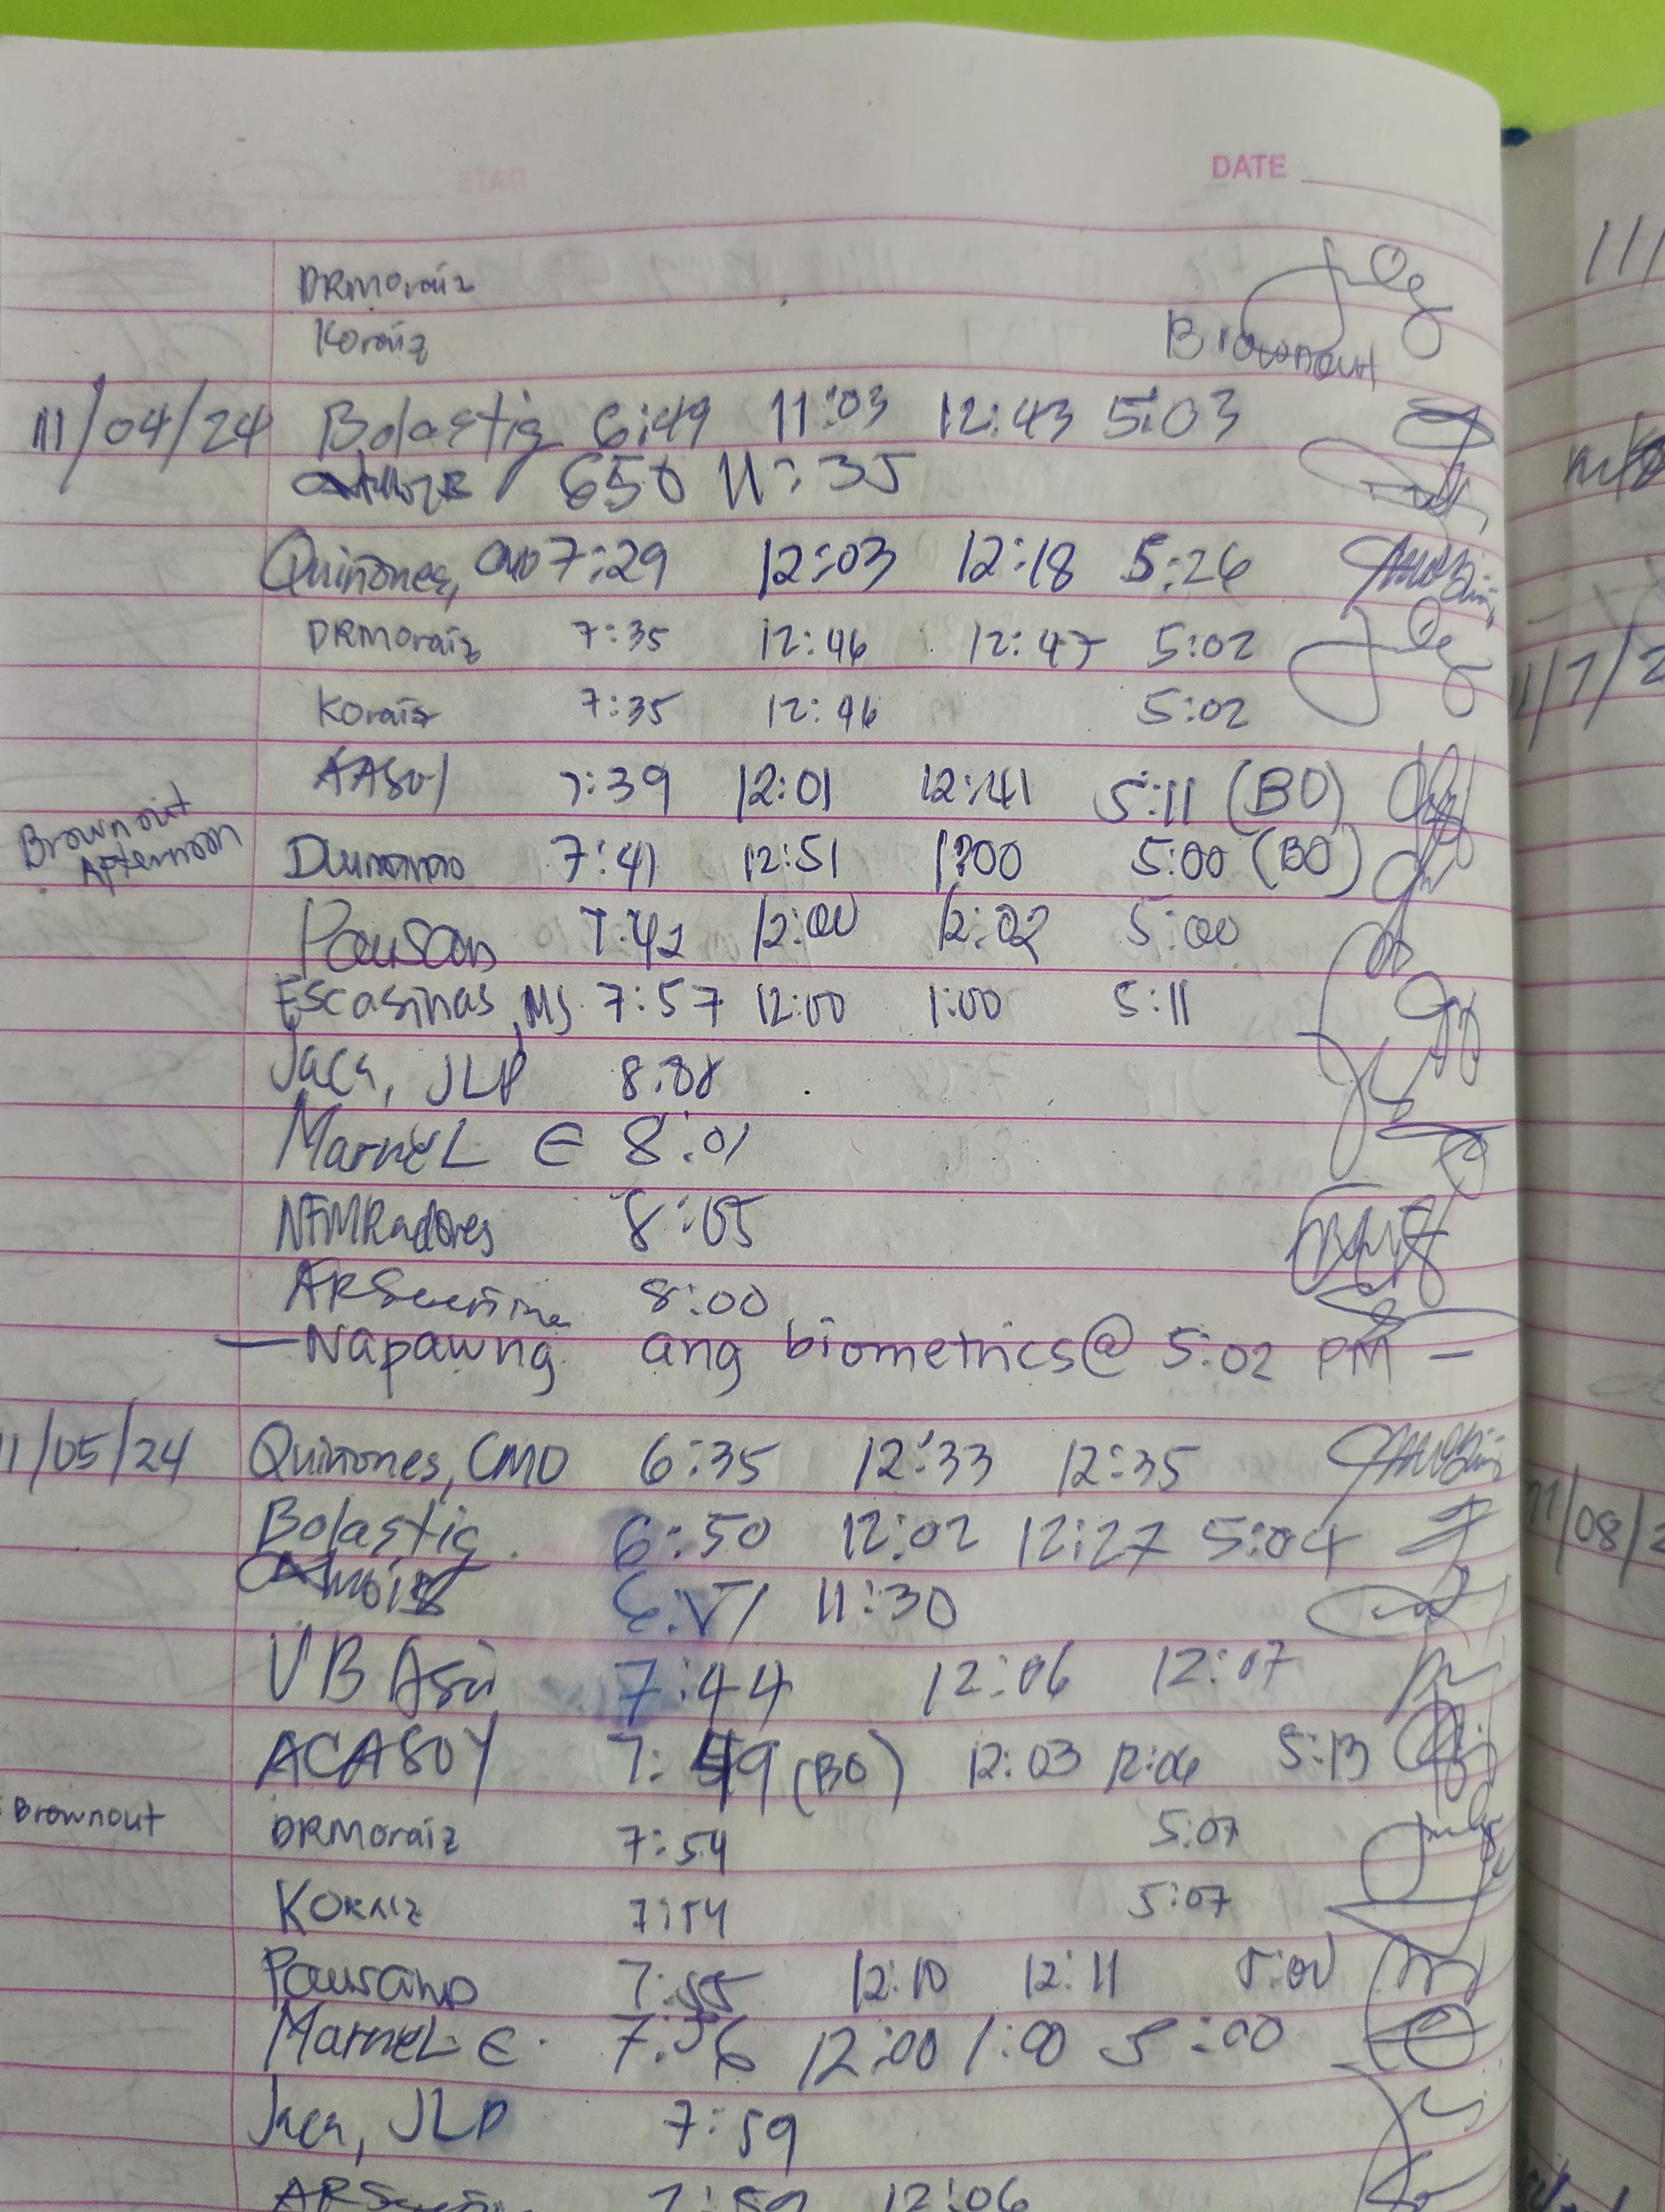 DATE
DRMoraiz
Koraiz
Brownout
11/04/24 Bolastig 6:49 11:03 12:43 5:03
650 11:35
Quiñones, CMO 7:29 12:03 12:18 5:26
DRMoraiz 7:35 12:46 12:47 5:02
Koraiz 7:35 12:46 5:02
AASOY 7:39 12:01 12:41 5:11 (BO)
Brownout
Afternoon
7:41 12:51 1:00 5:00 (BO)
7:42 12:00 12:02 5:00
Escasinas, MJ 7:57 12:00 1:00 5:11
Jaca, JLP
MarneL E 8:01
NFMRadores 8:05
8:00
— Napawng ang biometrics@ 5:02 PM —
11/05/24 Quiñones, CMO 6:35 12:33 12:35
Bolastig 6:50 12:02 12:27 5:04
11:30
VB Asu 7:44 12:06 12:07
ACASOY 7:49 (BO) 12:03 12:06 5:13
Brownout DRMoraiz 7:54 5:07
KORAIZ 7:54 5:07
7:55 12:10 12:11 5:00
MarneL E. 7:56 12:00 1:00 5:00
Jaca, JLP 7:59
7:59 12:06
11/08/2